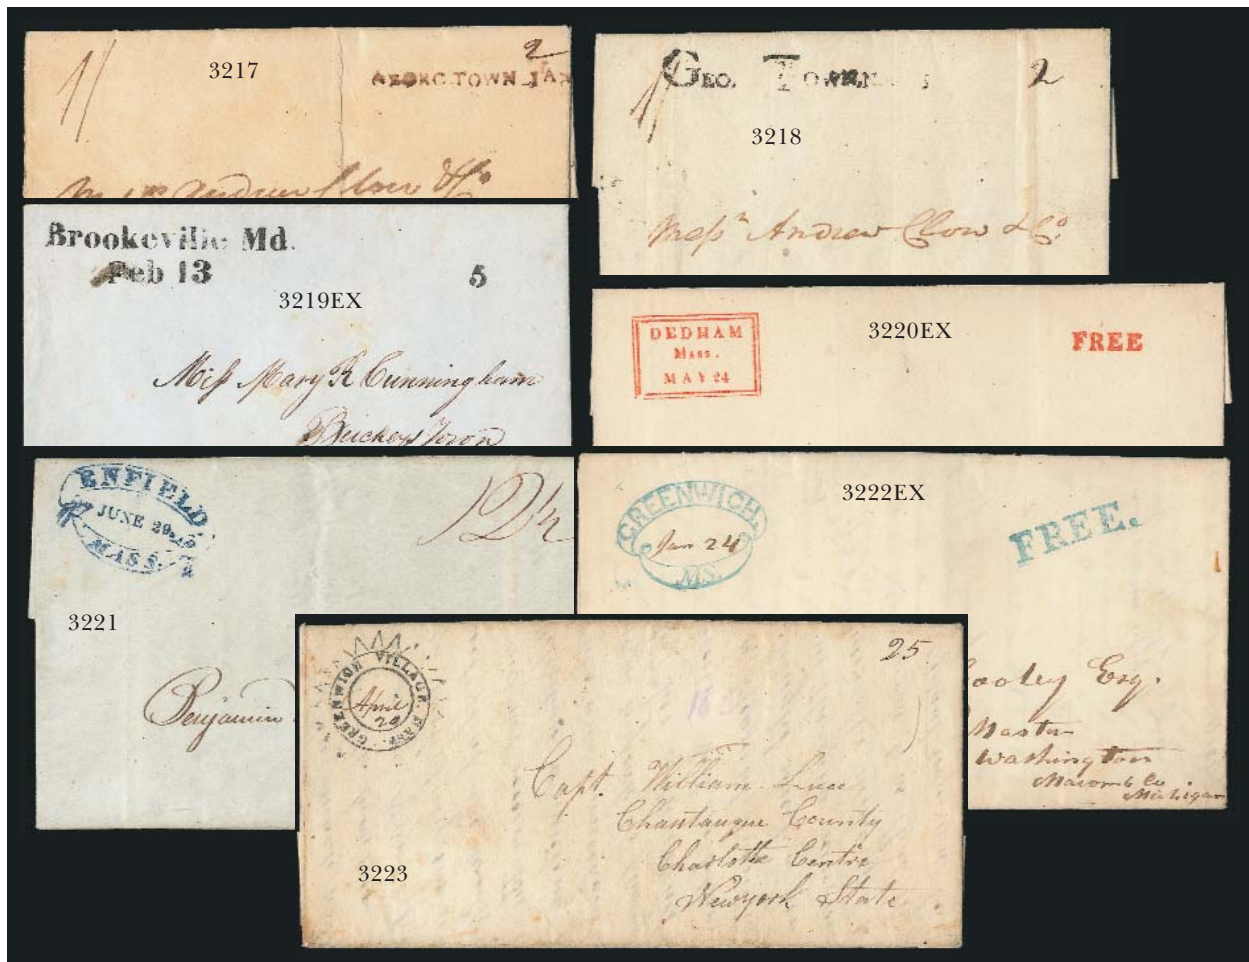 11
3217
2
GEORG.TOWN JAN
Andrew Clow & Co
11
GEO. TOWN
2
3218
Messrs Andrew Clow & Co.
Brookeville Md.
Feb 13
5
3219EX
Miss Mary R Cunningham
Buckeys Town
DEDHAM
MASS.
MAY 24
3220EX
FREE
ENFIELD
JUNE 29
MASS.
12½
3221
Benjamin
GREENWICH.
Jan 24
MS.
3222EX
FREE.
ooley Esq.
Master
Washington
Macomb Co
Michigan
GREENWICH VILLAGE MASS.
April
29
25
Capt. William Luce
Chautauque County
Charlotte Centre
Newyork State
3223